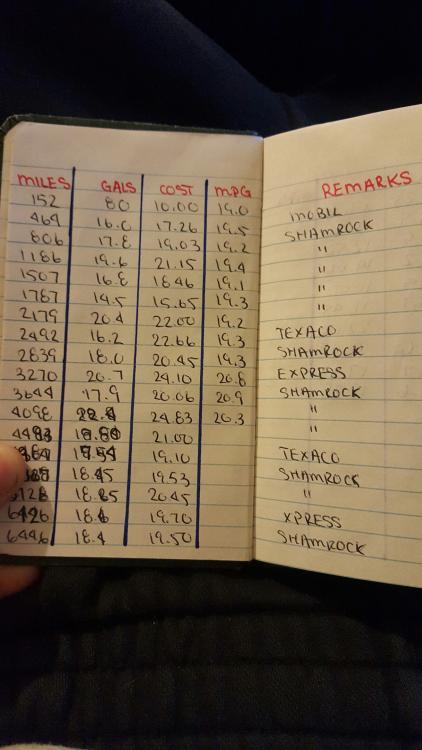 MILES GALS COST MPG REMARKS
152 80 10.00 19.0 MOBIL
469 16.0 17.26 19.5 SHAMROCK
806 17.8 19.03 19.2 "
1186 19.6 21.15 19.4 "
1507 16.8 18.46 19.1 "
1787 14.5 15.65 19.3 "
2179 20.4 22.00 19.2 TEXACO
2492 16.2 22.66 19.3 SHAMROCK
2839 18.0 20.45 19.3 EXPRESS
3270 20.7 24.10 20.8 SHAMROCK
3644 17.9 20.06 20.9 "
4098 24.83 20.3 "
21.00
19.10 TEXACO
18.45 19.53 SHAMROCK
18.85 20.45 "
6426 18.6 19.70 XPRESS
6446 18.4 19.50 SHAMROCK